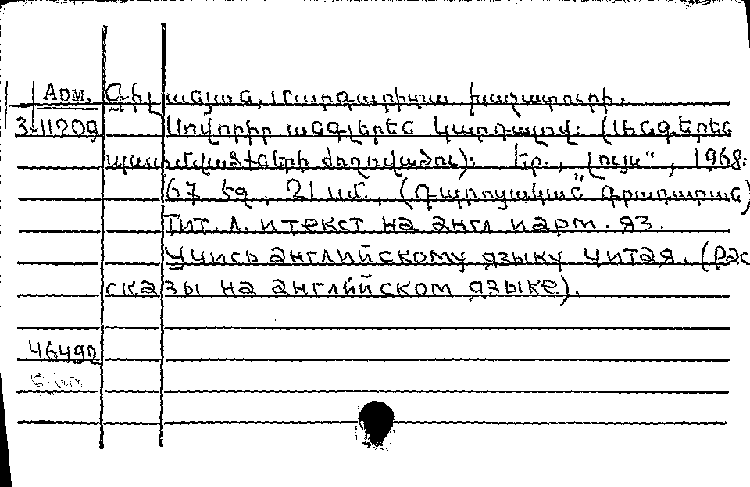 Арм. Գիլանյան, Մարգարիտա Խաչատուրի.
3-11209 Սովորիր անգլերեն կարդալով: (Անգլերեն
պատմվածքների ժողովածու): Եր., „Լույս", 1968.
67 էջ, 21 սմ., (Դպրոցական գրադարան)
Тит. л. и текст на англ и арм. яз.
Учись английскому языку читая. (Рас
сказы на английском языке).
46492